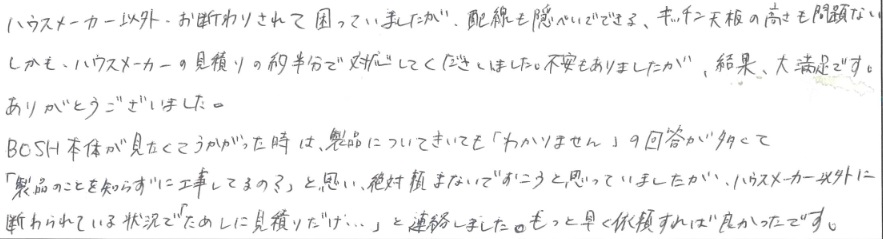 ハウスメーカー以外、お断わりされて困っていましたが、配線も隠ぺいでできる、キッチン天板の高さも問題ない
しかも、ハウスメーカーの見積りの約半分で対応してくださいました。不安もありましたが、結果、大満足です。
ありがとうございました。
BOSH本体が見たくてうかがった時は、製品についてきいても「わかりません」の回答が多くて
「製品のことを知らずに工事してるの?」と思い、絶対頼まないでおこうと思っていましたが、ハウスメーカー以外に
断わられている状況で「ためしに見積りだけ…」と連絡しました。もっと早く依頼すれば良かったです。